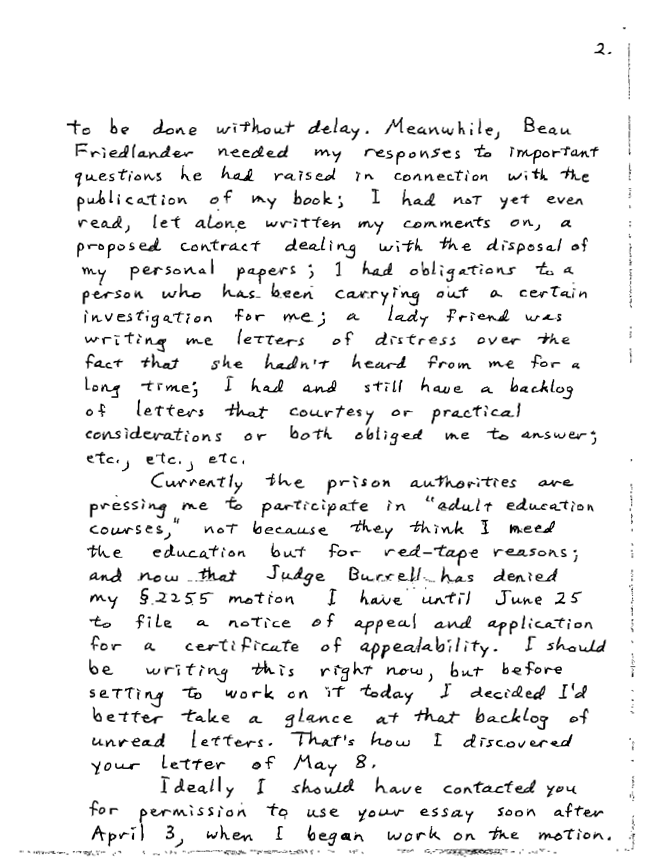 2.
to be done without delay. Meanwhile, Beau
Friedlander needed my responses to important
questions he had raised in connection with the
publication of my book; I had not yet even
read, let alone written my comments on, a
proposed contract dealing with the disposal of
my personal papers; I had obligations to a
person who has been carrying out a certain
investigation for me; a lady friend was
writing me letters of distress over the
fact that she hadn't heard from me for a
long time; I had and still have a backlog
of letters that courtesy or practical
considerations or both obliged me to answer;
etc., etc., etc.
Currently the prison authorities are
pressing me to participate in "adult education
courses," not because they think I need
the education but for red-tape reasons;
and now that Judge Burrell has denied
my §2255 motion I have until June 25
to file a notice of appeal and application
for a certificate of appealability. I should
be writing this right now, but before
setting to work on it today I decided I'd
better take a glance at that backlog of
unread letters. That's how I discovered
your letter of May 8.
Ideally I should have contacted you
for permission to use your essay soon after
April 3, when I began work on the motion.